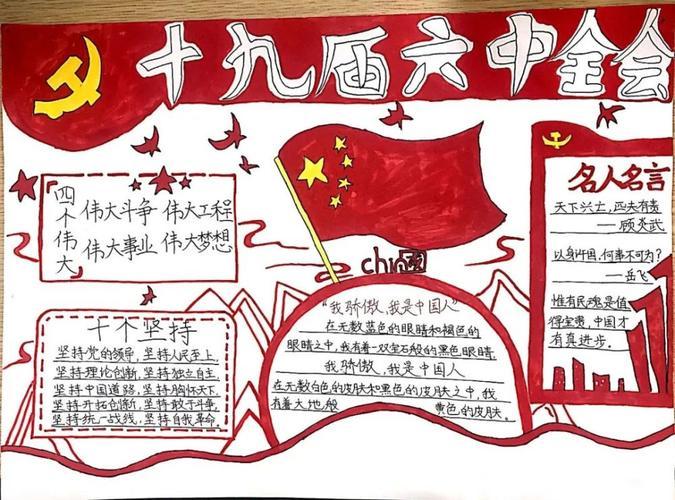 十九届六中全会
四个伟大
伟大斗争 伟大工程
伟大事业 伟大梦想
十个坚持
坚持党的领导,坚持人民至上,
坚持理论创新,坚持独立自主,
坚持中国道路,坚持胸怀天下,
坚持开拓创新,坚持敢于斗争,
坚持统一战线,坚持自我革命。
“我骄傲,我是中国人”
在无数蓝色的眼睛和褐色的
眼睛之中,我有着一双宝石般的黑色眼睛,
我骄傲,我是中国人
在无数白色的皮肤和黑色的皮肤之中,我
有着大地般 黄色的皮肤。
名人名言
天下兴亡,匹夫有责
—顾炎武
以身许国,何事不可为?
—岳飞
惟有民魂是值
得宝贵,中国才
有真进步。